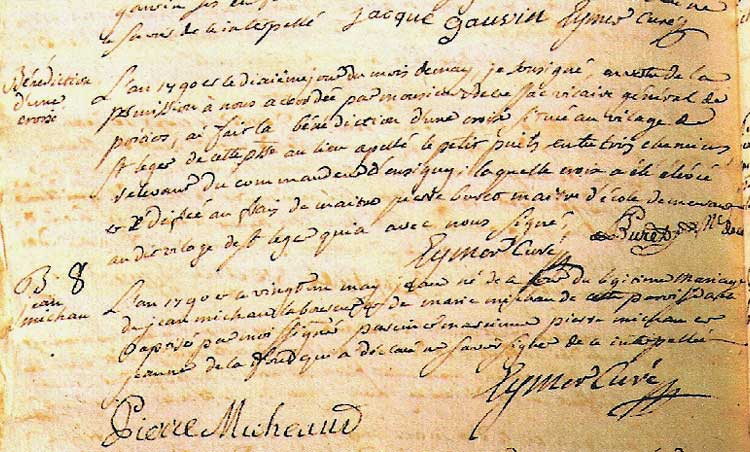 a savoir de la interpellé Jacque gauvin Eymer Curé
Bénédiction
d'une
croix
L'an 1790 et le dixième jour du mois de may, je sousigné, en vertu de la
permission a nous accordée par monsieur vicaire général de
poitiers, ai fait la bénédiction d'une croix située au vilage de
st leger de cette psse au lieu apellé le petit puits entre trois chemins
relevant du commandeur d'ensigny; laquelle croix a été élevée
et édifiée au frais de maitre pierre buret maitre d'école demeurant
au dit vilage de st leger qui a avec nous signé,
Buret
Eymer Curé
B. 8
jean
michau
L'an 1790 et le vingt may jean né de la du légitime mariage
de jean michau laboureur et de marie micheau de cette paroisse
baptisé par moi signé parein et mareinne pierre michau et
jeanne de la qui a déclaré ne savoir signer de ce interpellée
Eymer Curé
Pierre Micheaud